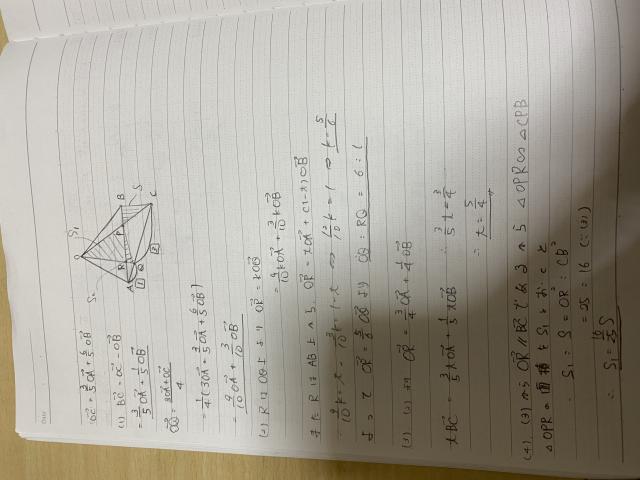 OC = 3/5 OA + 6/5 OB
(1) BC = OC - OB
= 3/5 OA + 1/5 OB
OQ = 3OA + OC / 4
= 1/4 (3OA + 3/5 OA + 6/5 OB)
= 9/10 OA + 3/10 OB
O
S₁
A
R
P
B
S
Q
C
1
(2) R は OQ 上より OR = kOQ
= 9/10 kOA + 3/10 kOB
また R は AB 上から、OR = xOA + (1-x)OB
9/10 k = x, 3/10 k = 1-x ⇔ 12/10 k = 1 ⇔ k = 5/6
よって OR = 5/6 OQ より OQ : RQ = 6 : 1
(3) (2) より OR = 3/4 OA + 1/4 OB
tBC = 3/5 tOA + 1/5 tOB ∴ 3/5 t = 3/4
∴ t = 5/4
(4) (3) から OR // BC であるから △OPR ∽ △CPB
△OPR の面積を S₁ とおくと
S₁ : S = OR² : CB²
= 25 : 16 (∵(3))
∴ S₁ = 16/25 S